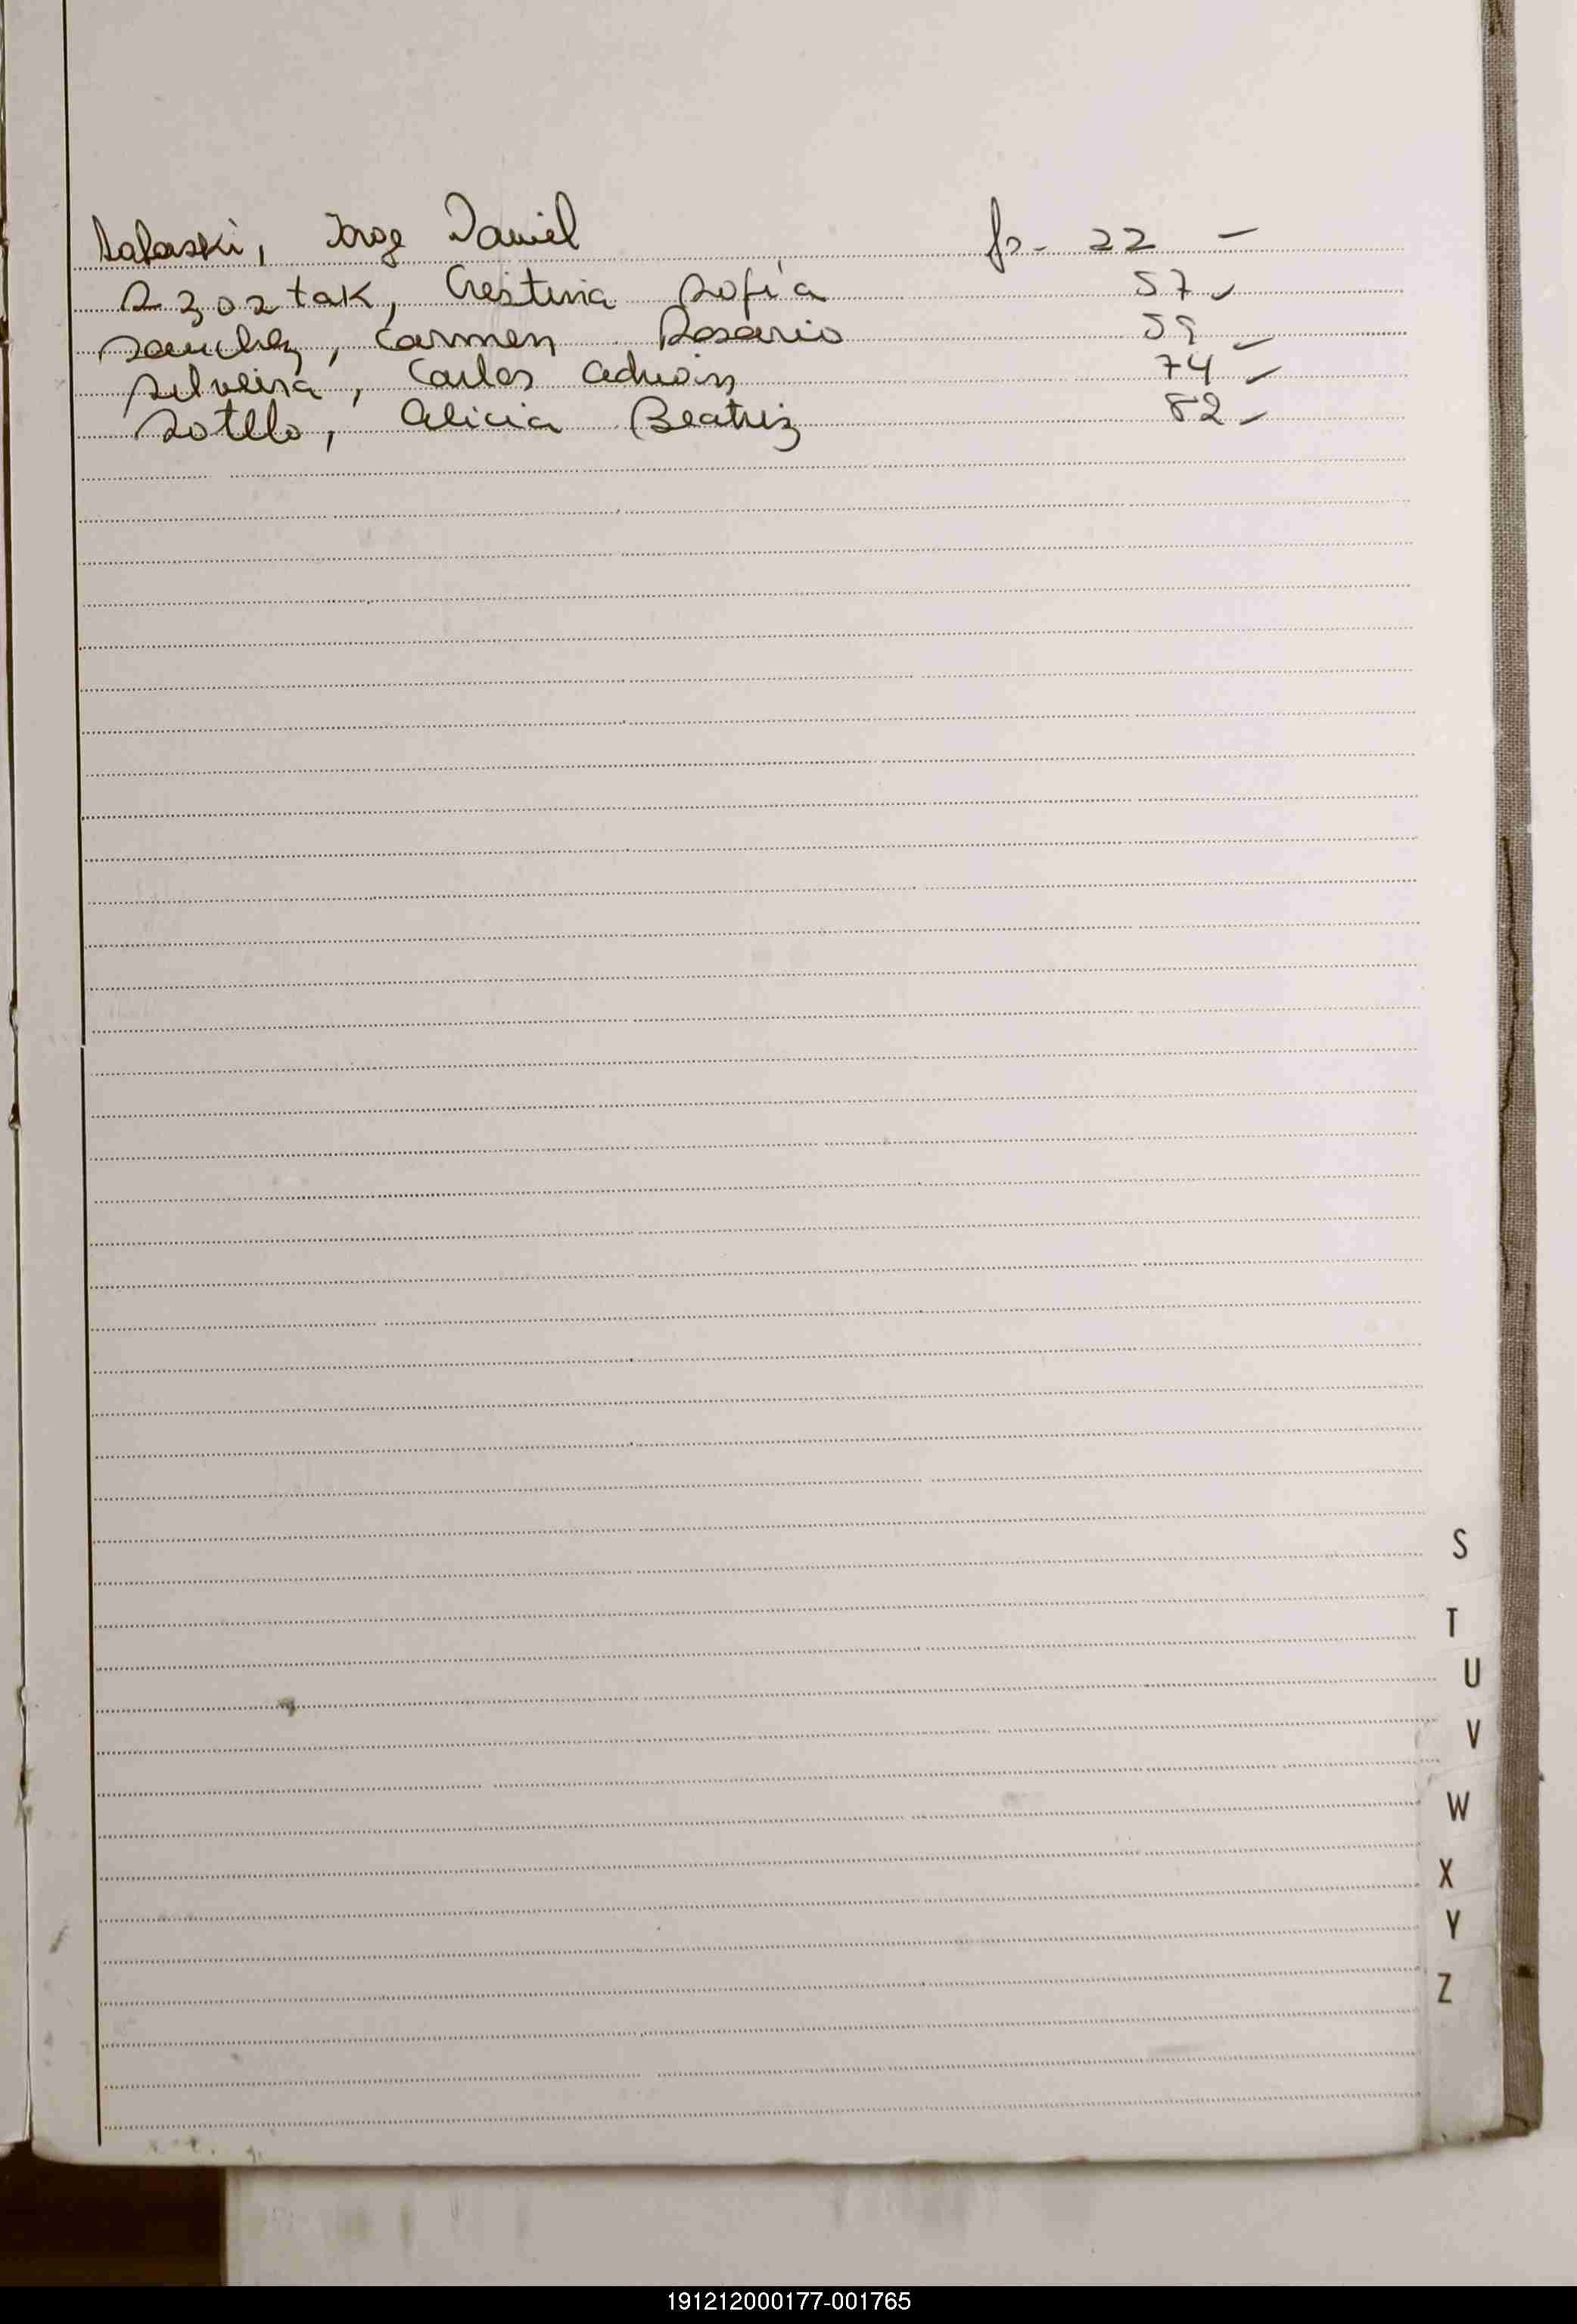 Salaski, Jorge Daniel fs- 22 -
Szoztak, Cristina Sofía 57 -
Sanchez, Carmen Rosario 59 -
Silveira, Carlos Adrián 74 -
Sotelo, Alicia Beatriz 82 -
S
T
U
V
W
X
Y
Z
191212000177-001765